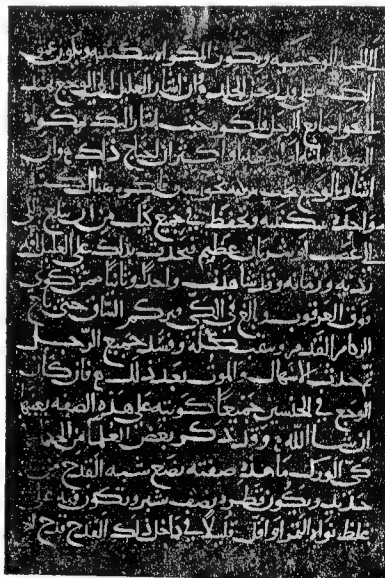 الجهة الوحشية ويكون المكواة سكينية ويكون عمق
الكية على قدر ثخن الجلد فان اشار العليل الى الوجع عند
نحو اصابع الرجل فاكوه حيث اشار اليك بمكواة
النقطة ثلثة او اربعة او اكثر ان احتاج ذلك وان
اشار الوجع تحت ركبته نحو فاكوه هنالك كية
واحدة سكينية وتحفظ في جميع كيك من ان تبلغ بالكي
الى عصب او شريان عظيم فتحدث بذلك على العليل افة
ردية وزمانة وقد شاهدت واحدا وثانيا ممن كوى
فوق العرقوب وبالغ في الكي فورم الساق حتى بلغ
الورم القدم وتثقب كله وفسد جميع الرجل
ثم حدث الاسهال والموت بعد ذلك فان كان
الوجع في الجانبين جميعا كويته على هذه الصفة بعينها
ان شا الله وقد ذكر بعض الحكما في
كي الورك ما هذه صفته يصنع شبه القدح من
حديد ويكون قطره نصف شبر ويكون فيه على
غلظ نواة التمر او اقل قليلا في داخل ذلك القدح قدح اخر